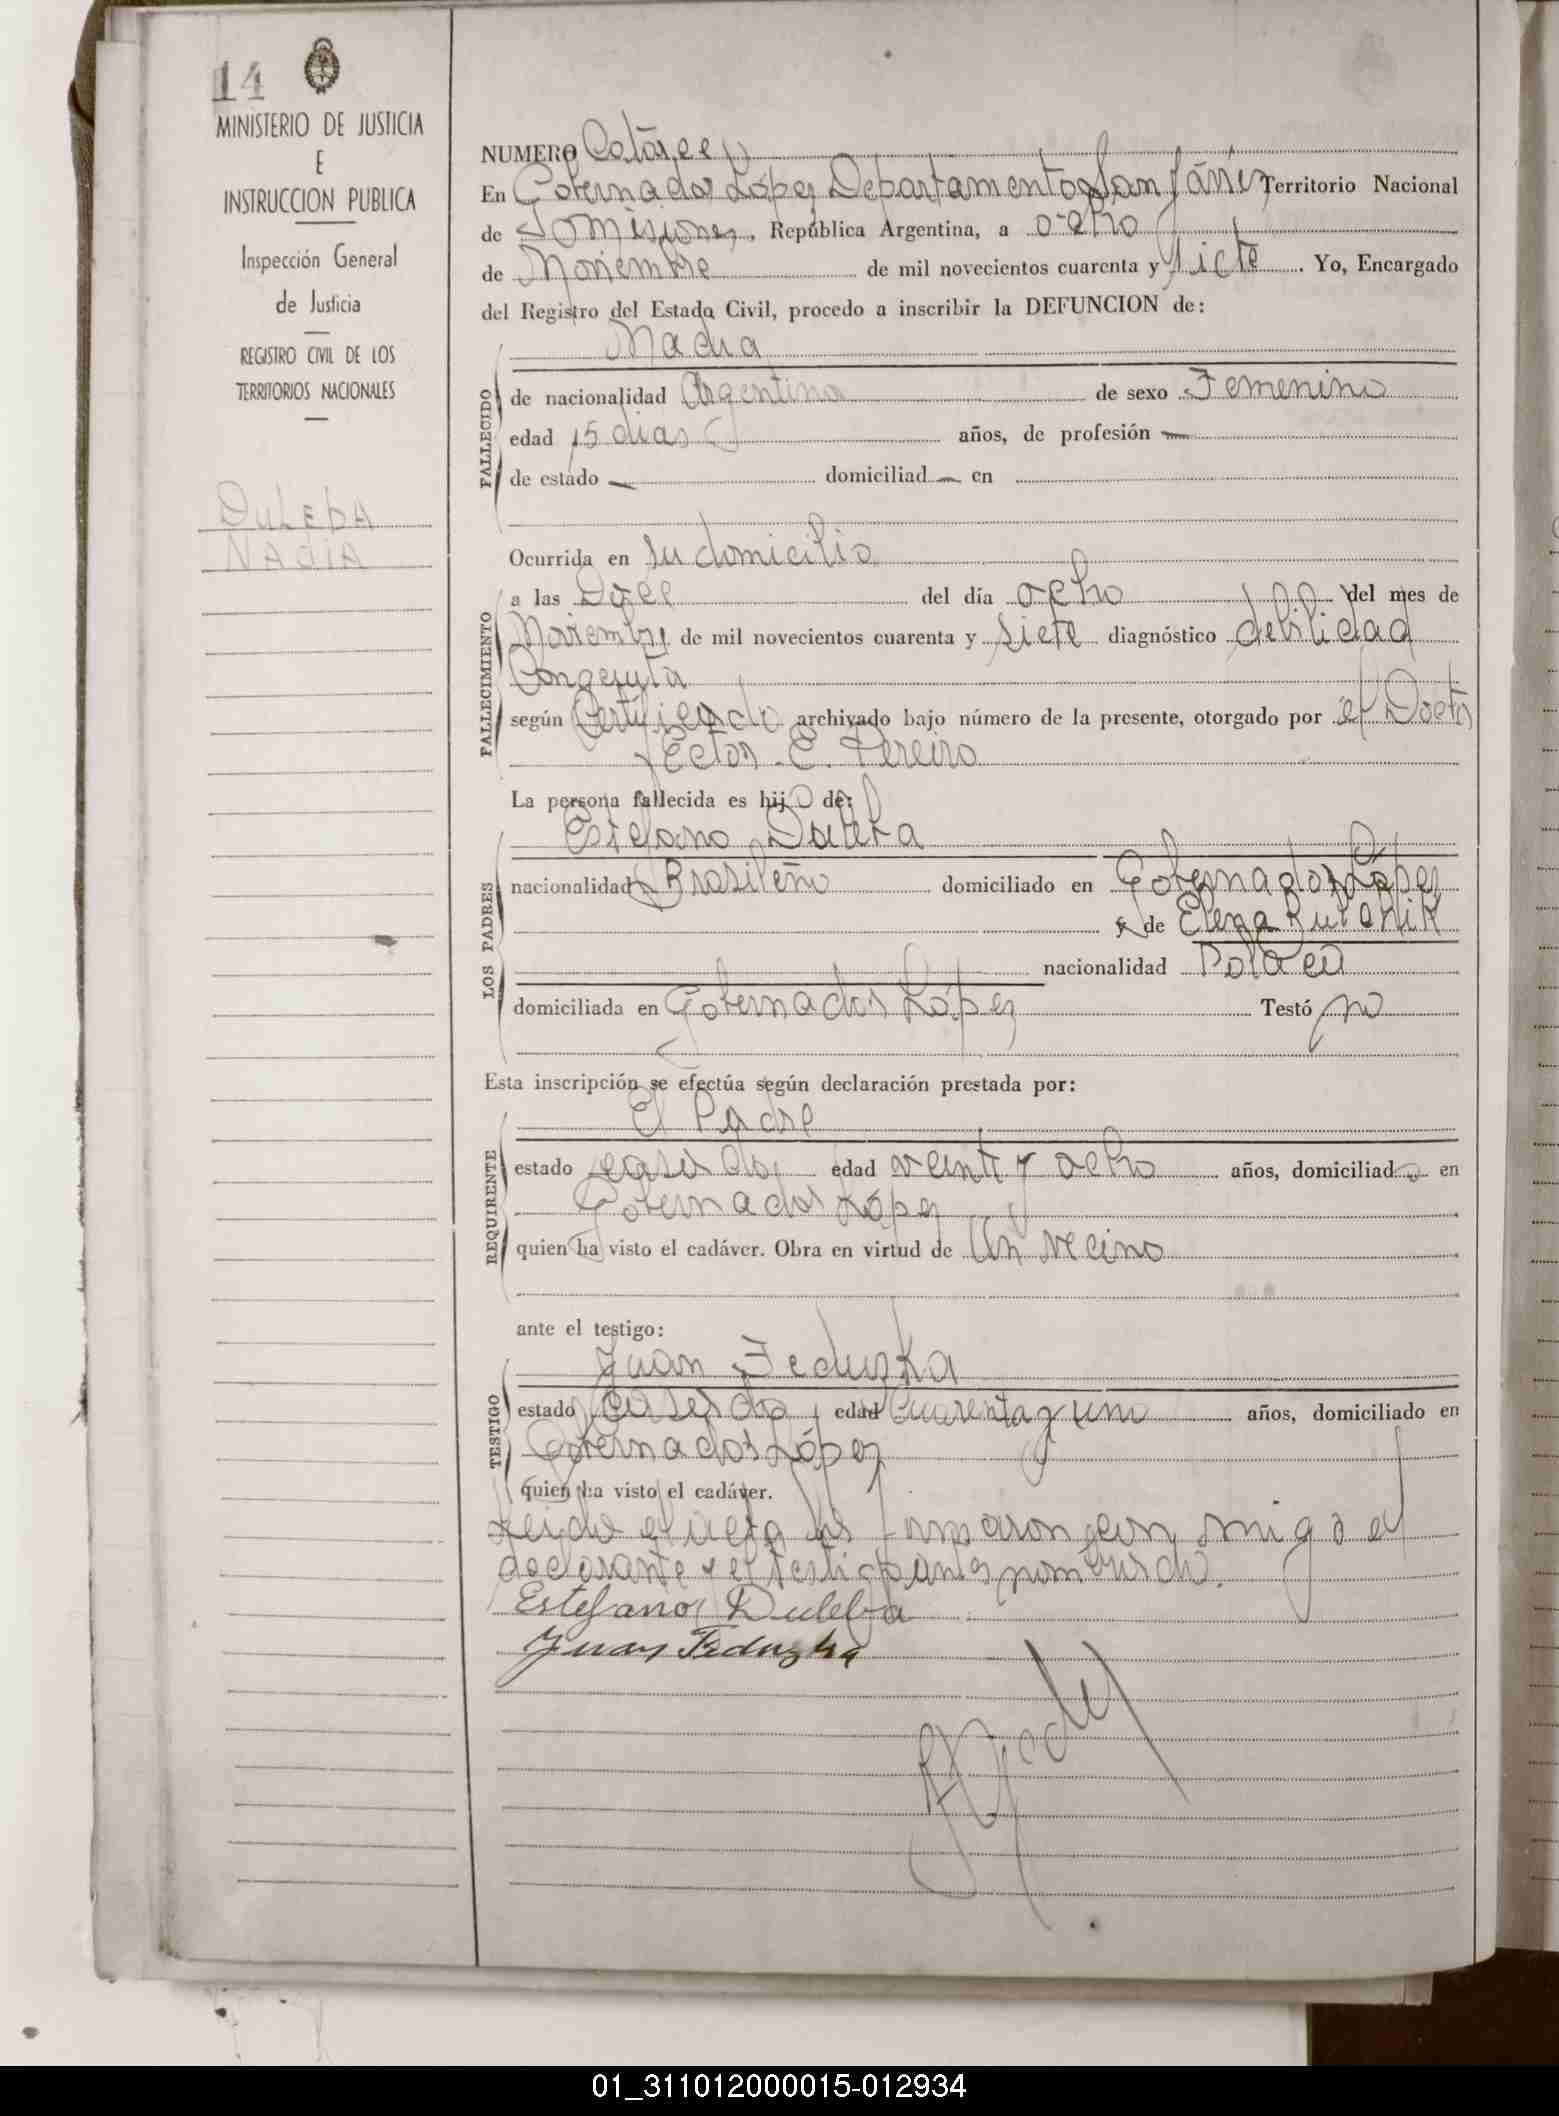 14
MINISTERIO DE JUSTICIA
E
INSTRUCCION PUBLICA
Inspección General
de Justicia
REGISTRO CIVIL DE LOS
TERRITORIOS NACIONALES
DULEBA
NADIA
NUMERO Catorce
En Gobernador López Departamento San Javier Territorio Nacional
de Misiones, República Argentina, a ocho
de Noviembre de mil novecientos cuarenta y siete. Yo, Encargado
del Registro del Estado Civil, procedo a inscribir la DEFUNCION de:
Nadia
FALLECIDO
de nacionalidad Argentina de sexo Femenino
edad 15 dias años, de profesión —
de estado — domiciliad— en
Ocurrida en su domicilio
FALLECIMIENTO
a las Doce del día ocho del mes de
Noviembre de mil novecientos cuarenta y siete diagnóstico debilidad
Congenita
según Certificado archivado bajo número de la presente, otorgado por el Doctor
Ector E. Pereiro
La persona fallecida es hij de:
LOS PADRES
Estefano Duleba
nacionalidad Brasileño domiciliado en Gobernador López
y de Elena
nacionalidad Polaca
domiciliada en Gobernador López Testó no
Esta inscripción se efectúa según declaración prestada por:
REQUIRENTE
El Padre
estado casado edad veinte y ocho años, domiciliado en
Gobernador López
quien ha visto el cadáver. Obra en virtud de Un vecino
ante el testigo:
TESTIGO
Juan Feduzka
estado casado edad Cuarenta y uno años, domiciliado en
Gobernador López
quien ha visto el cadáver.
Leida el acta la firmaron con migo el
declarante y el testigo antes nombrado.
Estefano Duleba
Juan Feduzka
01_311012000015-012934